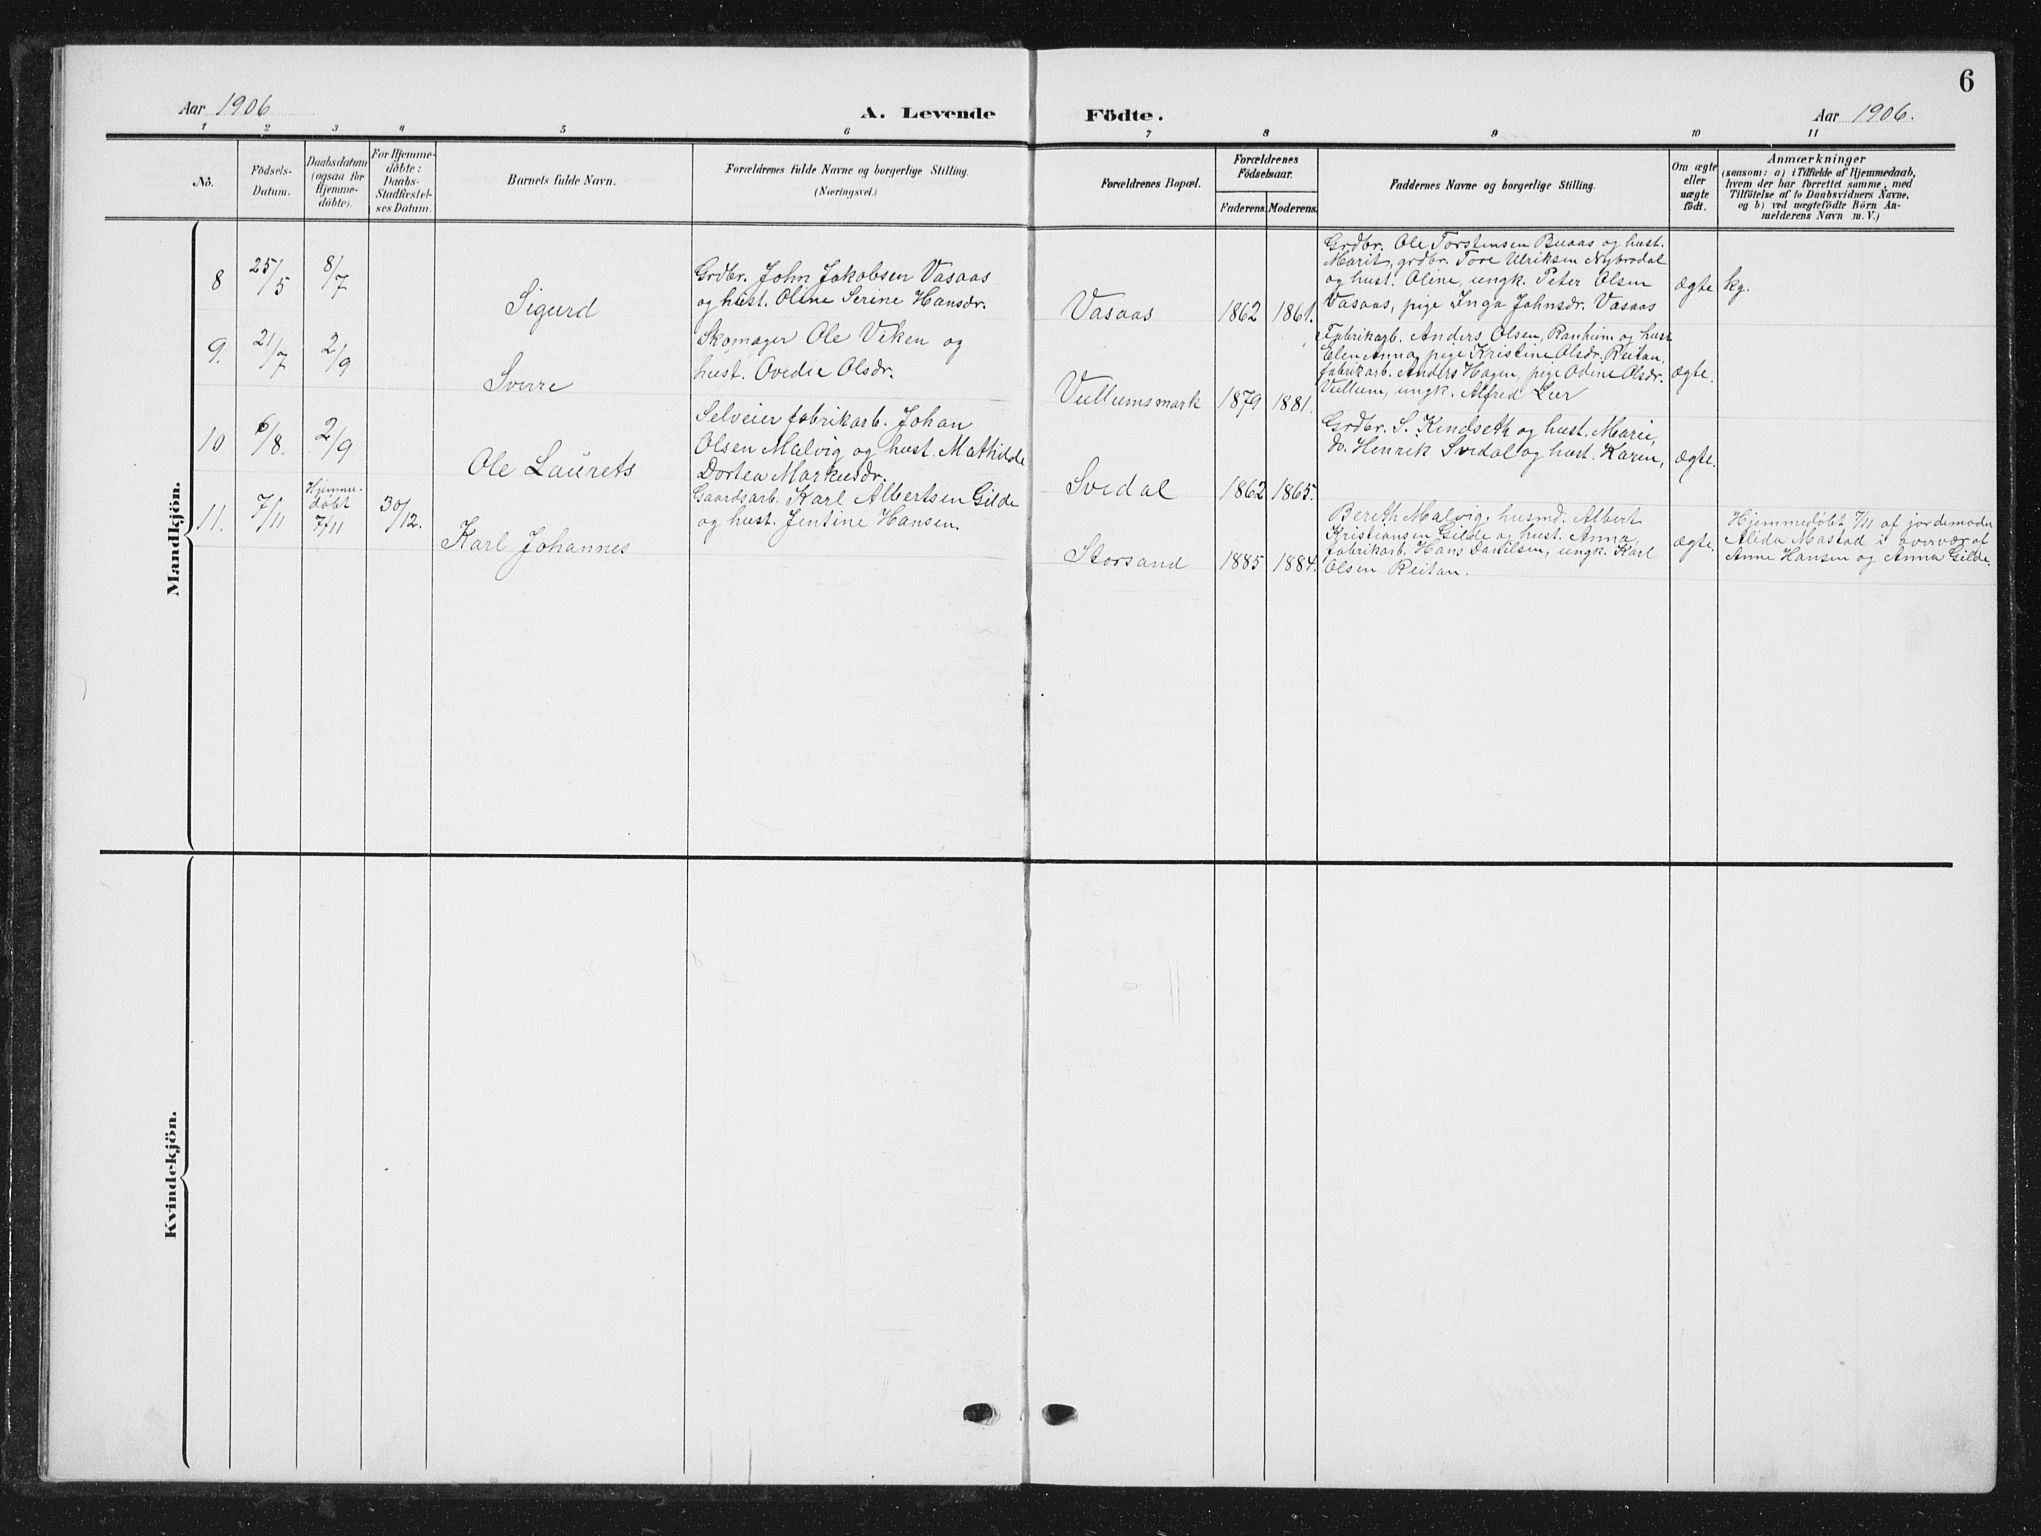 6
Aar 1906
A. Levende
Födte.
Aar 1906.
1 2 3 4 5 6 7 8 9 10 11
No.
Födsels-
Datum.
Daabsdatum
(ogsaa for
Hjemme-
döbte).
For Hjemme-
döbte:
Daabs-
Stadfæstel-
ses Datum.
Barnets fulde Navn.
Forældrenes fulde Navne og borgerlige Stilling.
(Næringsvei.)
Forældrenes Bopæl.
Forældrenes
Födselsaar.
Faderens. Moderens.
Faddernes Navne og borgerlige Stilling.
Om ægte
eller
uægte
födt.
Anmærkninger
(saasom: a) i Tilfælde af Hjemmedaab,
hvem der har forrettet samme, med
Tilföielse af to Daabsvidners Navne,
og b) ved uægtefödte Börn An-
melderens Navn m. V.)
Mandkjön.
8
25/5
8/7
Sigurd
Grdbr. John Jakobsen Vasaas
og hust. Oline Serine Hansdr.
Vasaas
1862 1861.
Grdbr. Ole Torstensen Buaas og hust.
Marit, grdbr. Tore Ulriksen Nybrodal
og hust. Oline, ungk. Peter Olsen
Vasaas, pige Inga Johnsdr. Vasaas
ægte
kg.
9.
21/7
2/9
Sverre
Skomager Ole Viken og
hust. Ovedie Olsdr.
Vullumsmark
1879 1881.
Fabrikarb. Anders Olsen, Ranheim og hust
Elen Anna, pige Kristine Olsdr. Reitan,
fabrikarb. Anders Hagen, pige Odine Olsdr.
Vullum, ungk. Alfred Lier
ægte.
10
6/8.
2/9
Ole Laurets
Selveier fabrikarb. Johan
Olsen Malvig og hust. Mathilde
Dortea Markusdr.
Svedal
1862 1865.
Grdbr. S. Kindseth og hust. Marie,
do. Henrik Svedal og hust. Karen,
Bereth Malvig.
ægte.
11.
7/11
Hjemme-
døbt
7/11
30/12.
Karl Johannes
Gaardsarb. Karl Albertsen Gilde
og hust. Jentine Hansen.
Storsand
1885 1884.
husmd. Albert
Kristiansen Gilde og hust. Anna,
fabrikarb. Hans Danilsen, ungk. Karl
Olsen Reitan.
ægte.
Hjemmedøbt 7/11 af jordemoder
Alida Mastad i overvær af
Anne Hansen og Anna Gilde.
Kvindekjön.